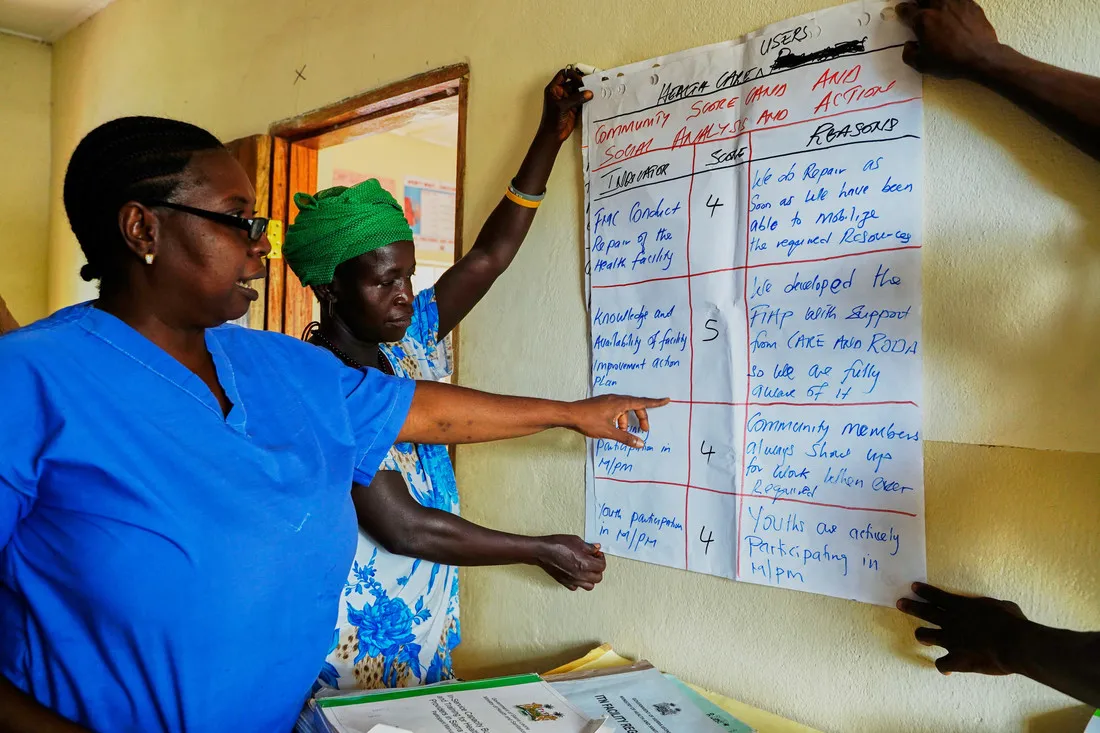 USERS
HEALTH CARE
COMMUNITY SCORE CARD AND
SOCIAL ANALYSIS AND ACTION
INDICATOR SCORE REASONS
FMC Conduct
Repair of the
Health facility
4
We do Repair as
Soon as We have been
able to Mobilize
the required Resources
Knowledge and
Availability of facility
Improvement action
Plan
5
We developed the
FIAP With Support
from CARE AND RODA
So We are fully
aware of it
participation in
M/PM
4
Community members
always show up
for Work When ever
Required
Youth participation
in M/PM
4
Youths are actively
Participating in
M/PM
In-Service Capacity
and Training for Health
Providers in Sierra
ITN FACILITY